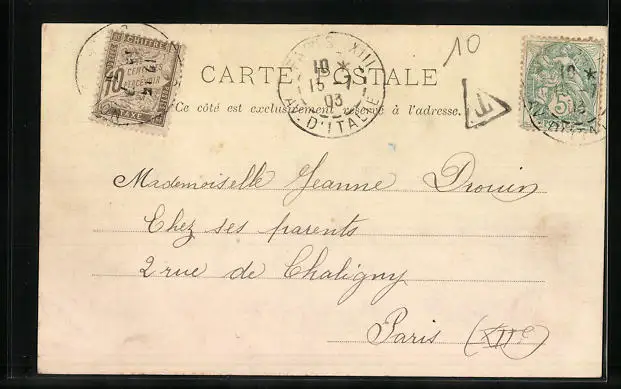 10
CARTE POSTALE
Ce côté est exclusivement réservé à l'adresse.
CHIFFRE
10 CENTIMES
TAXE
PARIS XIII
10 *
15 -1
03
AV. D'ITALIE
T
5
10 *
03
Mademoiselle Jeanne Drouin
Chez ses parents
2 rue de Chaligny
Paris (XIIe)